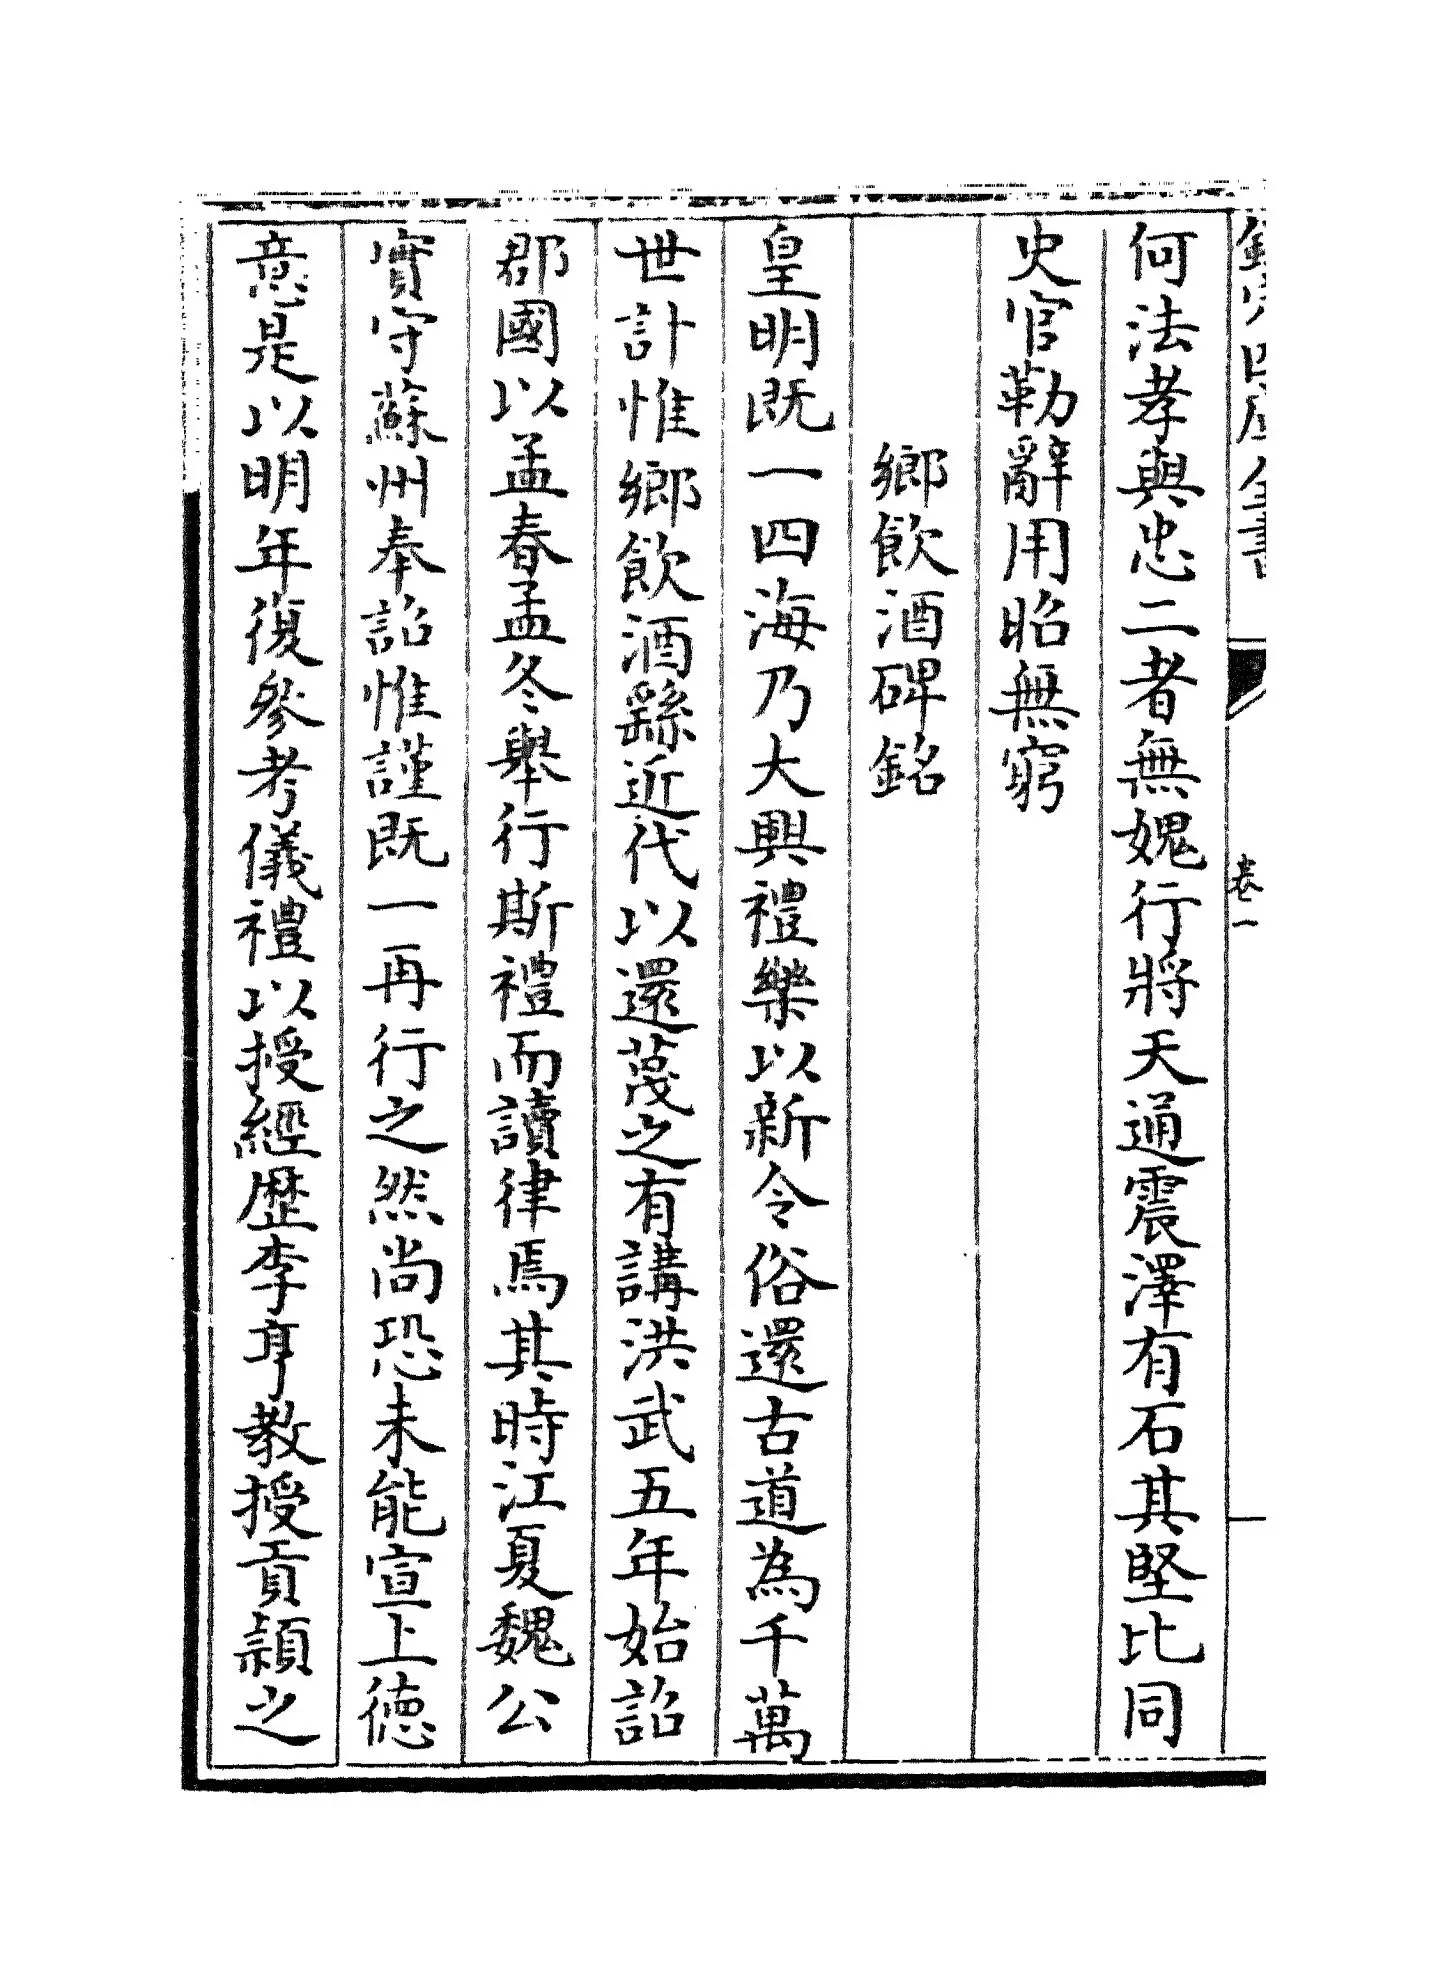 欽定四庫全書
卷一
何法孝與忠二者無媿行將天通震澤有石其堅比同
史官勒辭用昭無窮
鄉飲酒碑銘
皇明既一四海乃大興禮樂以新令俗還古道為千萬
世計惟鄉飲酒繇近代以還蔑之有講洪武五年始詔
郡國以孟春孟冬舉行斯禮而讀律焉其時江夏魏公
實守蘇州奉詔惟謹既一再行之然尚恐未能宣上德
意是以明年復參考儀禮以授經歴李亨教授貢頴之